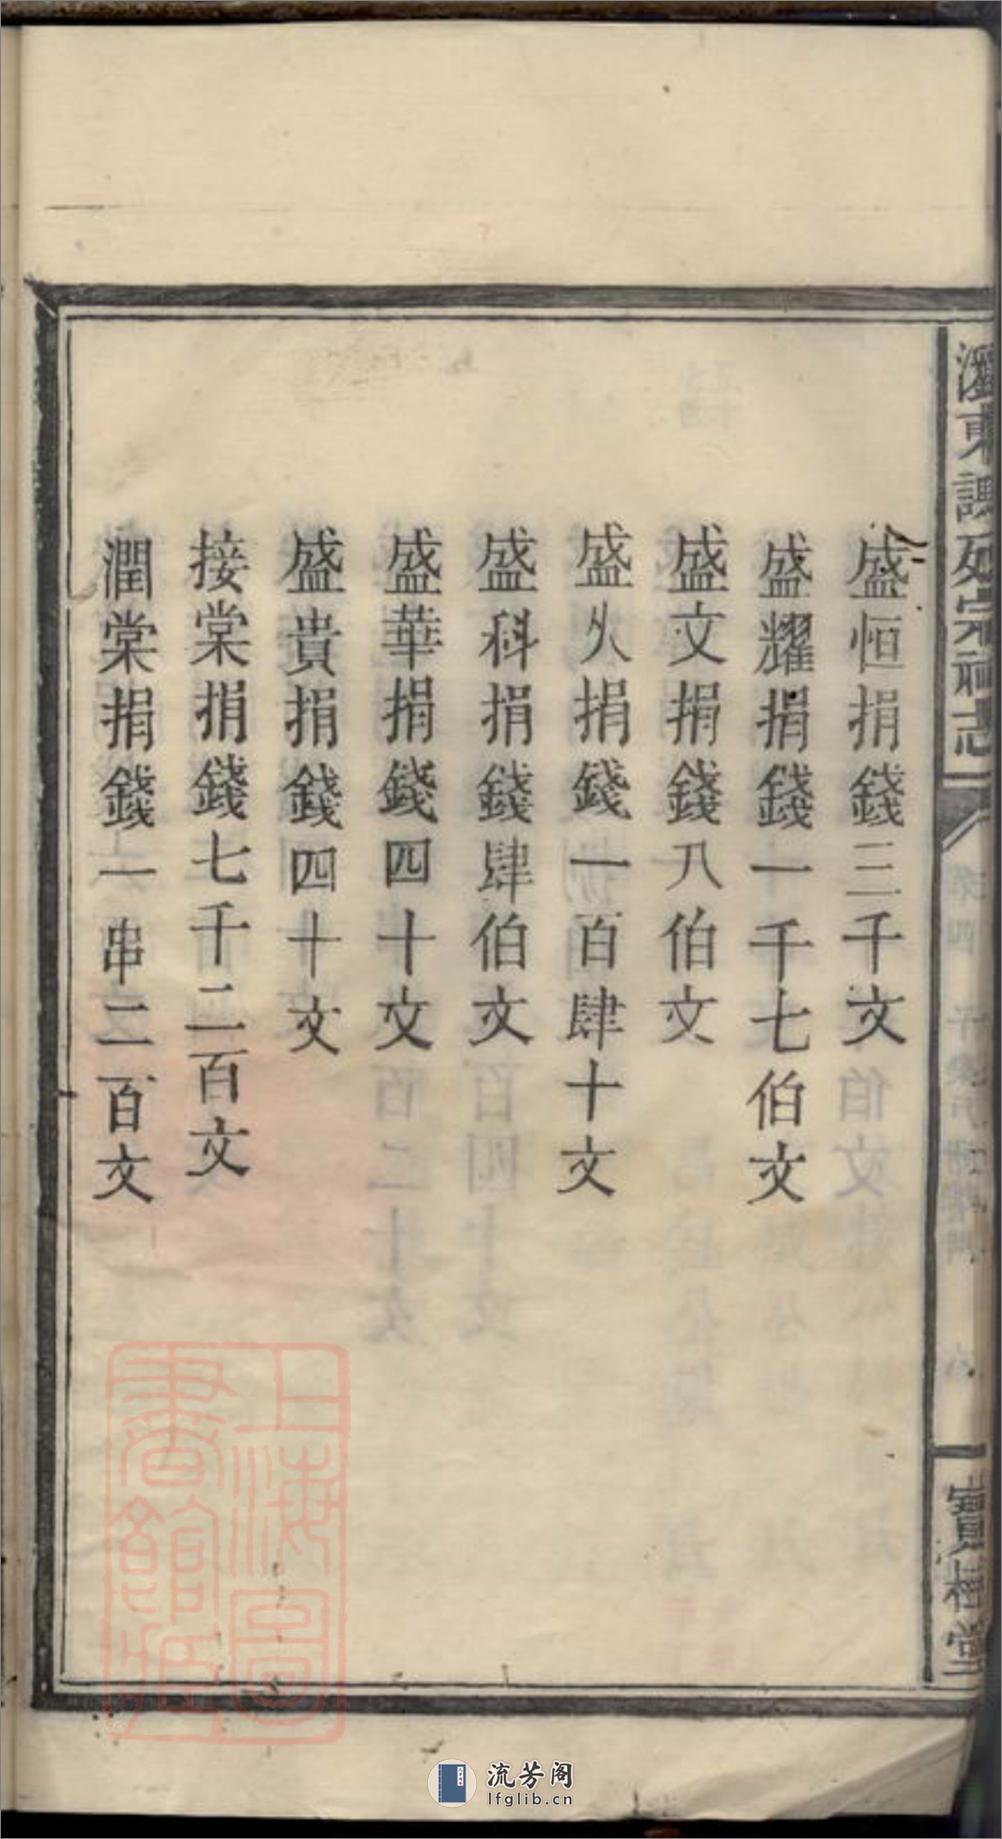 盛恒捐錢三千文
盛耀捐錢一千七伯文
盛文捐錢八伯文
盛久捐錢一百肆十文
盛科捐錢肆伯文
盛華捐錢四十文
盛貴捐錢四十文
接棠捐錢七千二百文
潤棠捐錢一串二百文
東譚宗祠志
寶樹堂
上海圖書館藏
流芳阁
lfglib.cn